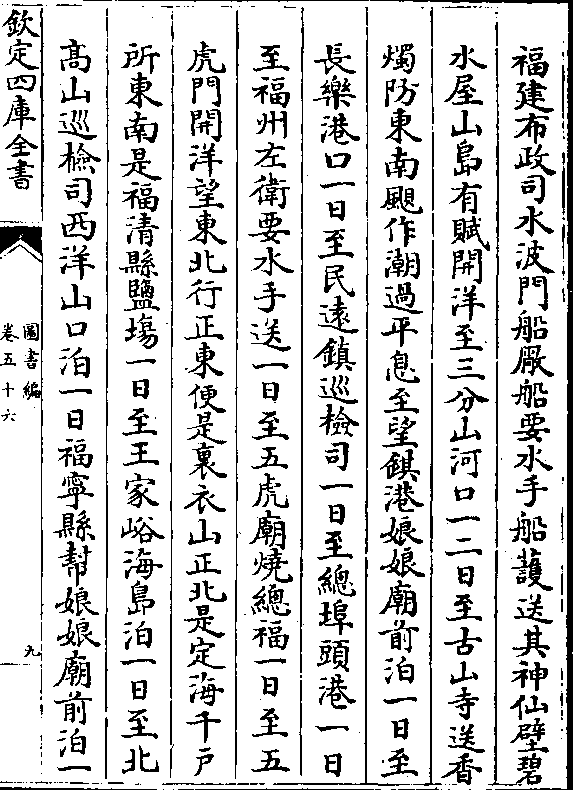 福建布政司水波門船厰船要水手船䕶送其神仙壁碧
水屋山島有賦開洋至三分山河口一二日至古山寺送香
燭防東南颶作潮過平息至望鎮港娘娘廟前泊一日至
長樂港口一日至民逺鎮巡檢司一日至總埠頭港一日
至福州左衛要水手送一日至五虎廟燒總福一日至五
虎門開洋望東北行正東便是裏衣山正北是定海千戸
所東南是福清縣鹽塲一日至王家峪海島泊一日至北
髙山巡檢司西洋山口泊一日福寧縣幇娘娘廟前泊一
欽定四庫全書
圖書編
卷五十六
九